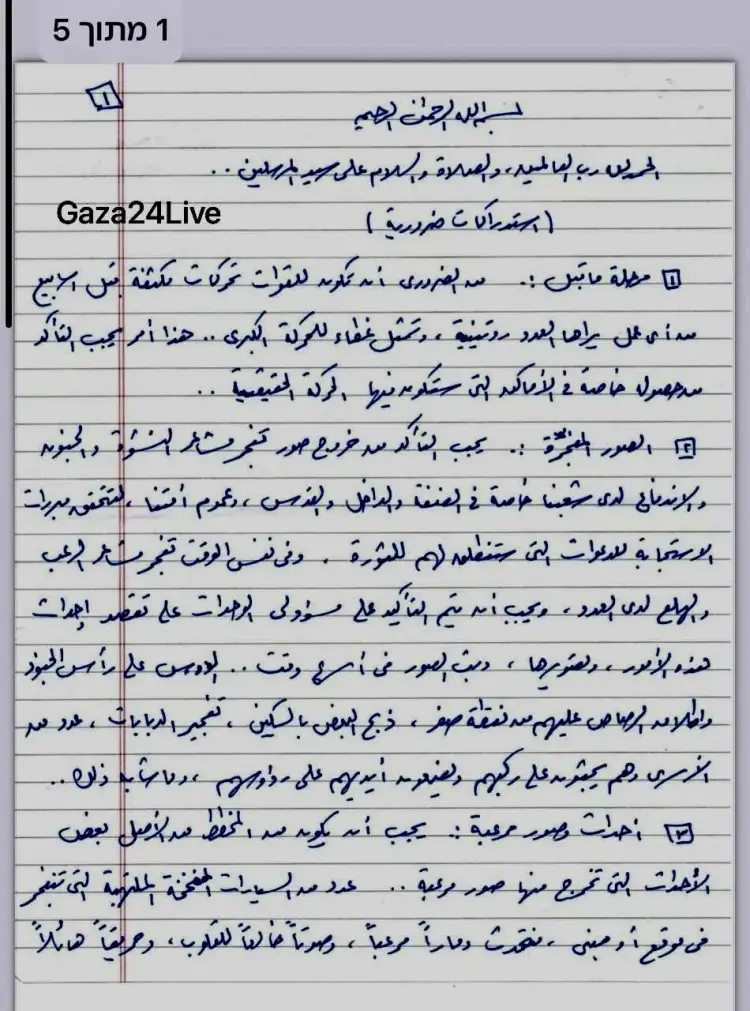 1 מתוך 5
١
بسم الله الرحمن الرحيم
الحمد لله رب العالمين، والصلاة والسلام على سيد المرسلين ..
Gaza24Live
(استدراكات ضرورية)
١ مرحلة ما قبل :. من الضروري أن تكون للقوات تحركات مكثفة قبل أسابيع
من أي عمل يراها العدو روتينية، وتمثل غطاء للحركة الكبرى .. هذا أمر يجب التأكد
من حصوله خاصة في الأماكن التي ستكون فيها الحركة الحقيقية ..
٢ الصور المفجّرة :. يجب التأكد من خروج صور تفجر مشاعر النشوة والجنون
والاندفاع لدى شعبنا خاصة في الضفة والداخل والقدس، وعموم أمتنا، لتتحقق مبررات
الاستجابة للدعوات التي ستنطلق لهم للثورة . وفي نفس الوقت تفجر مشاعر الرعب
والهلع لدى العدو، ويجب أن يتم التأكيد على مسؤولي الوحدات على تقصد إحداث
هذه الأمور، وتصويرها، وبث الصور في أسرع وقت .. الدوس على رأس الجنود
وإطلاق الرصاص عليهم من نقطة صفر، ذبح البعض بالسكين، تفجير الدبابات، عدد من
الأسرى وهم يجثون على ركبهم ويضعون أيديهم على رؤوسهم، وما شابه ذلك ..
٣ أحداث وصور مرعبة :. يجب أن يكون من المخطط من الأصل بعض
الأحداث التي تخرج منها صور مرعبة .. عدد من السيارات المفخخة الملتهبة التي تنفجر
في موقع أو مبنى، فتحدث دماراً مرعباً، وصوتاً خالعاً للقلوب، وحريقاً هائلاً